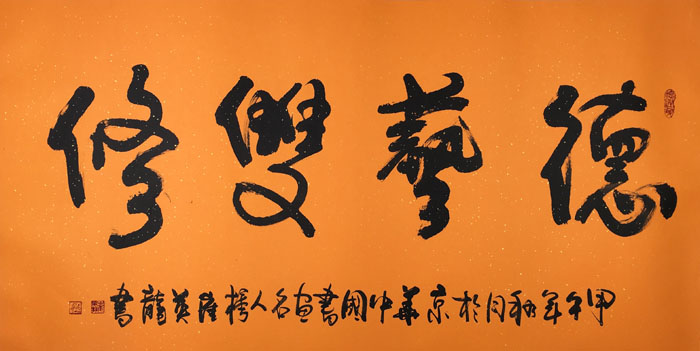 德藝雙修
甲午年秋月於京華中國書画名人英龍書